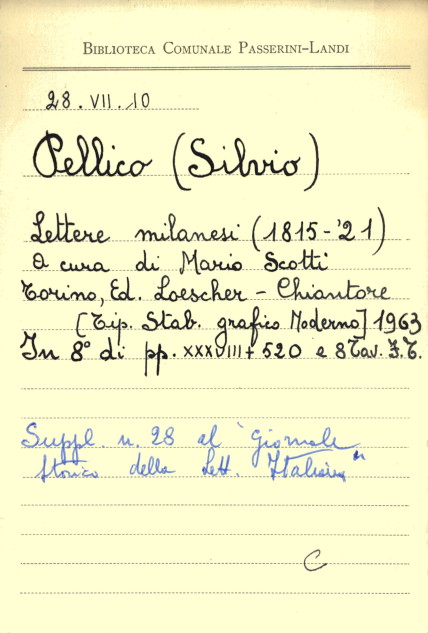 BIBLIOTECA COMUNALE PASSERINI-LANDI
28.VII.10
Pellico (Silvio)
Lettere milanesi (1815-'21)
A cura di Mario Scotti
Torino, Ed. Loescher - Chiantore
[Tip. Stab. grafico Moderno] 1963
In 8° di pp. XXXVIII + 520 e 8 Tav. F.T.
Suppl. n. 28 al "Giornale
storico della Lett. Italiana"
C